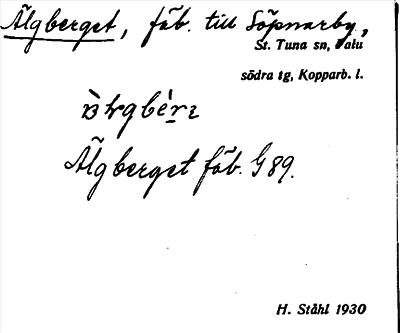 Älgberget, fäb. till Söpnarby,
St. Tuna sn,
södra tg, Kopparb. l.
Älgberget fäb. G 89.
H. Ståhl 1930